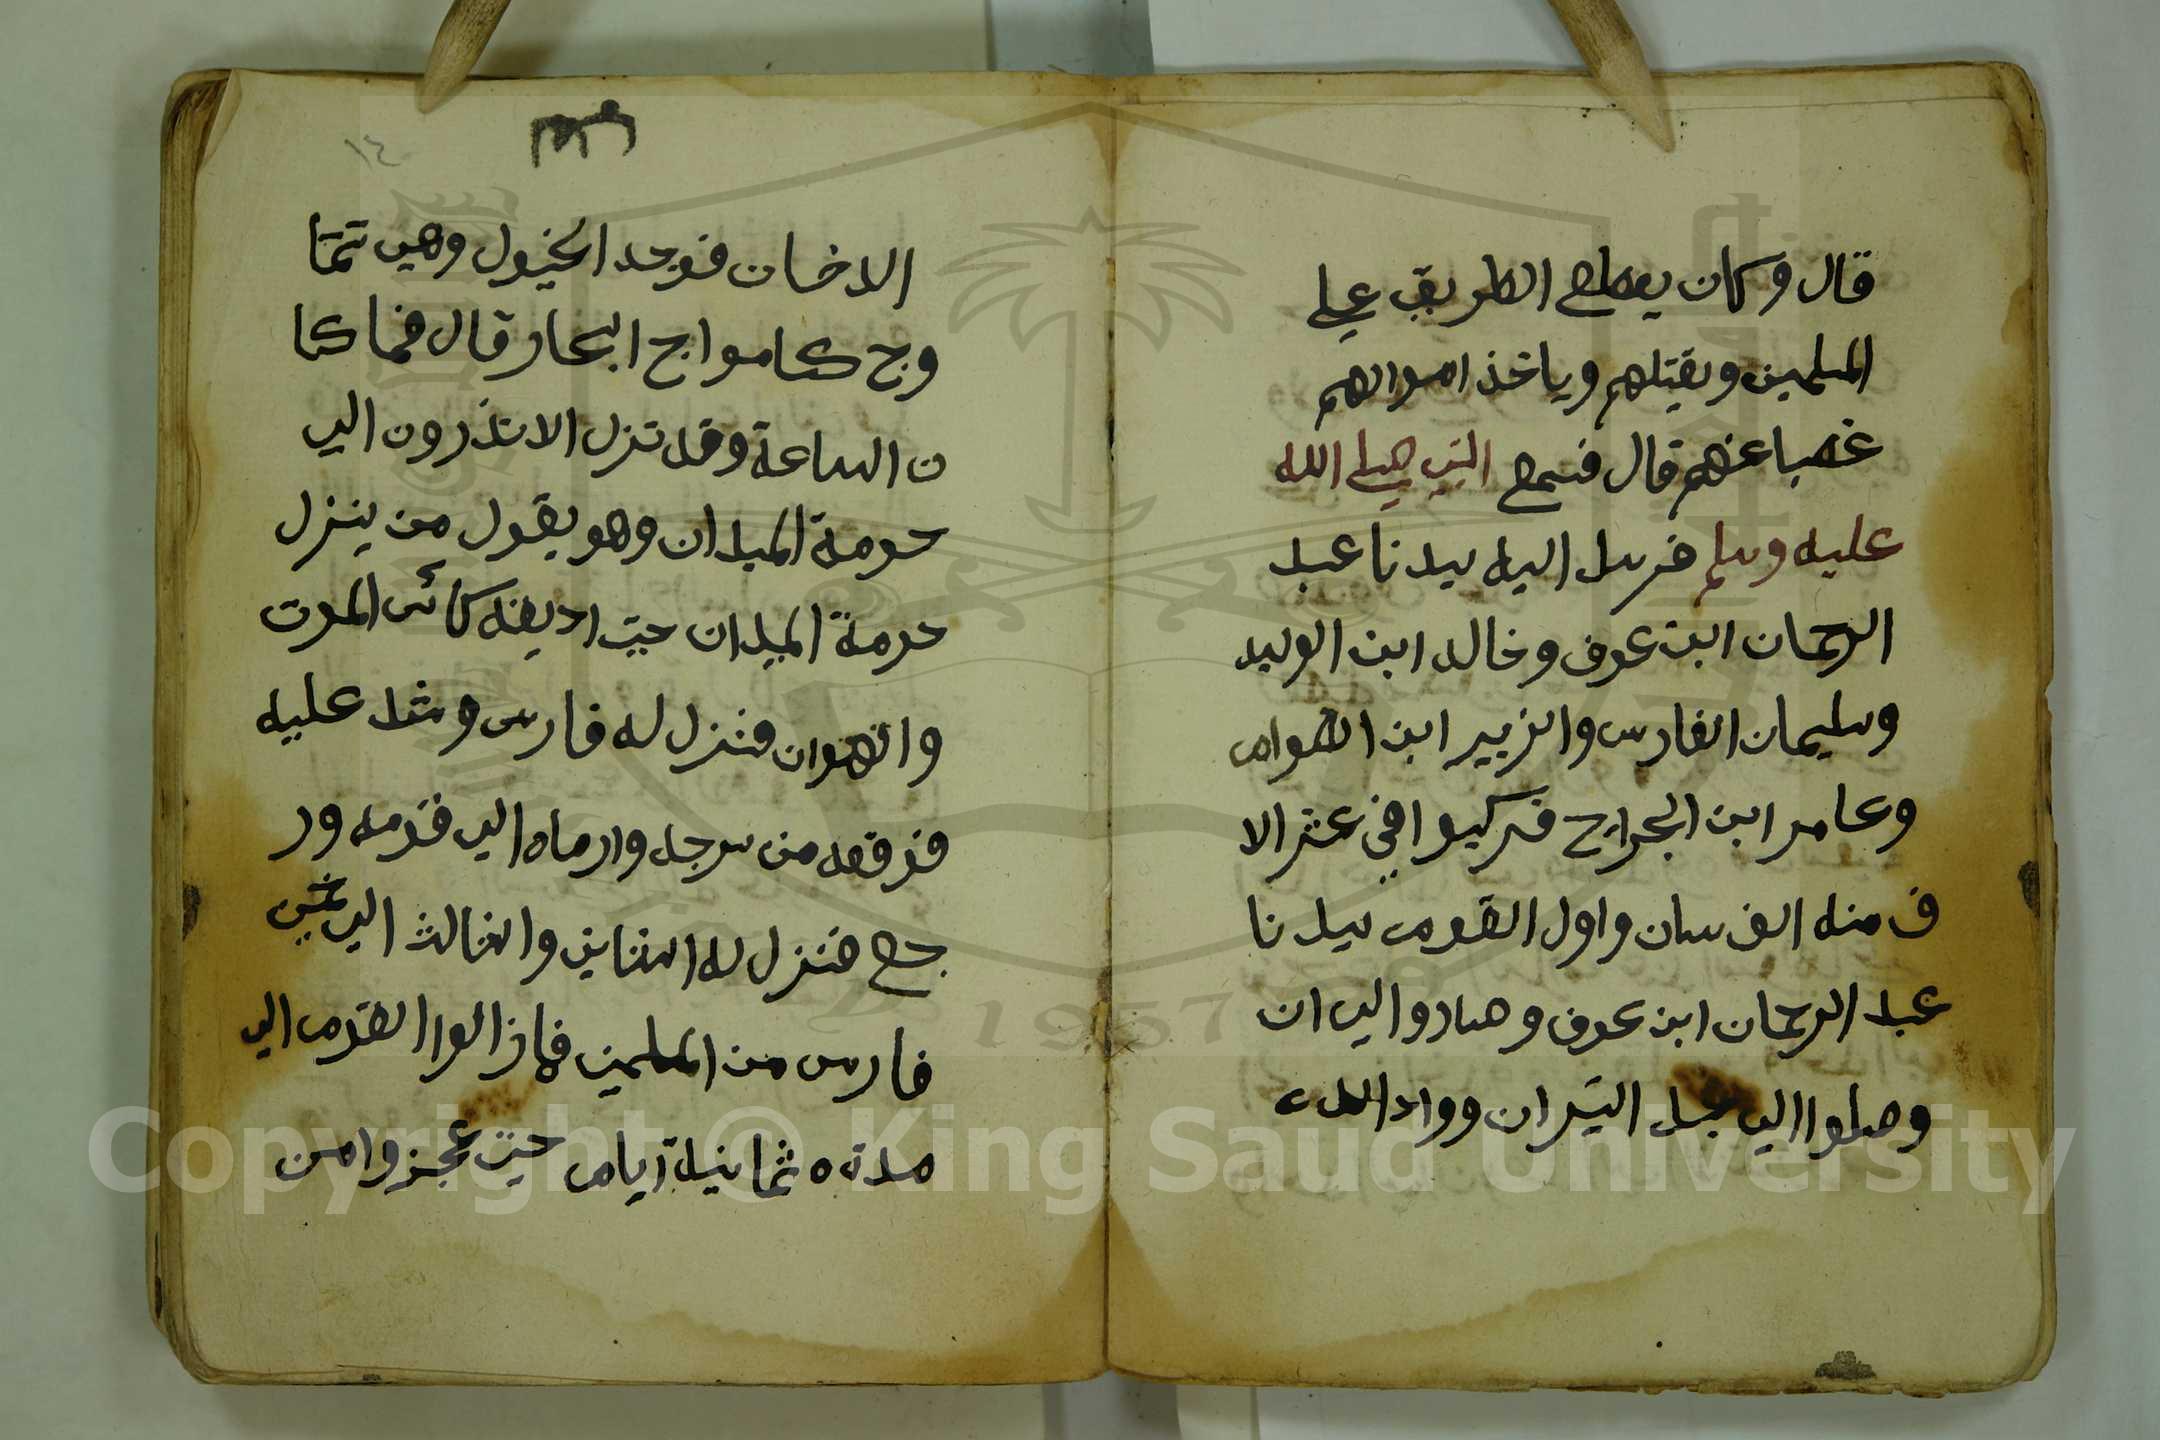 قال وكان يقطع الطريق على
المسلمين ويقتلهم وياخذ اموالهم
غصبا عنهم قال فسمع النبي صلى الله
عليه وسلم فرسل اليه سيدنا عبد
الرحمان ابن عوف وخالد ابن الوليد
وسليمان الفارس والزبير ابن العوام
وعامر ابن الجراح فركبوا في عشر الا
ف منه الفرسان واول القوم سيدنا
عبد الرحمان ابن عوف وصاروا الى ان
وصلوا الى جبل النيران وواد
١٤
الدخان فوجد الخيول وهي تمتا
وج كامواج البحار قال فما كا
ن الساعة وقد نزل الانذرون الى
حومة الميدان وهو يقول من ينزل
حومة الميدان حتى اديقه كائس الموت
والهوان فنزل له فارس وشد عليه
فرقعه من سرجه وارماه الى قومه ور
جع فنزل له الثاني والثالث الى
فارس من المسلمين فما زالوا القوم الى
مدة ه ثمانية ايام حتى عجزوا من
Copyright © King Saud University
1957